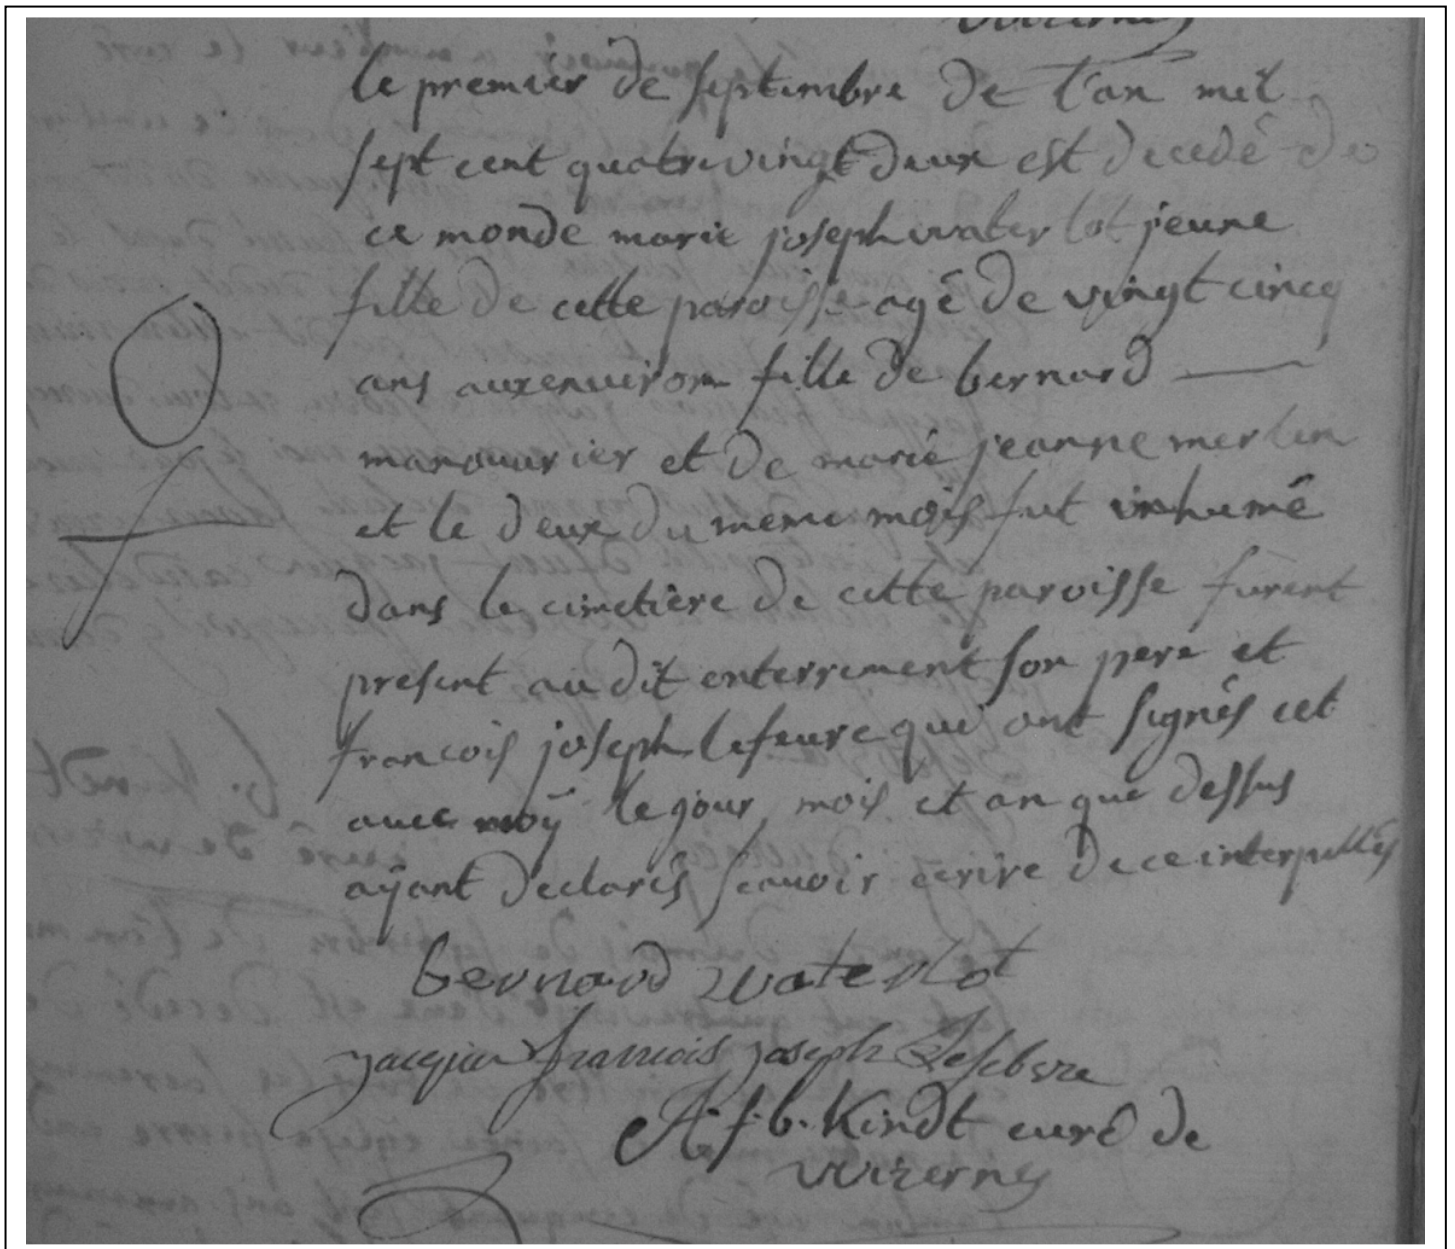 wizernes
le premier de septembre de l'an mil
sept cent quatre vingt deux est decedé de
ce monde marie joseph waterlot jeune
fille de cette paroisse agé de vingt cincq
ans auxenviron fille de bernard
manouvrier et de marie jeanne merlin
et le deux du meme mois fut inhumé
dans le cimetiere de cette paroisse furent
present au dit enterrement son pere et
francois joseph lefeuvre qui ont signés cet
avec moÿ le jour mois et an que dessus
aÿant declarés scavoir ecrire de ce interpellés
bernard waterlot
jacque francois joseph Lefebvre
A. f. b. Kindt curé de
wizernes